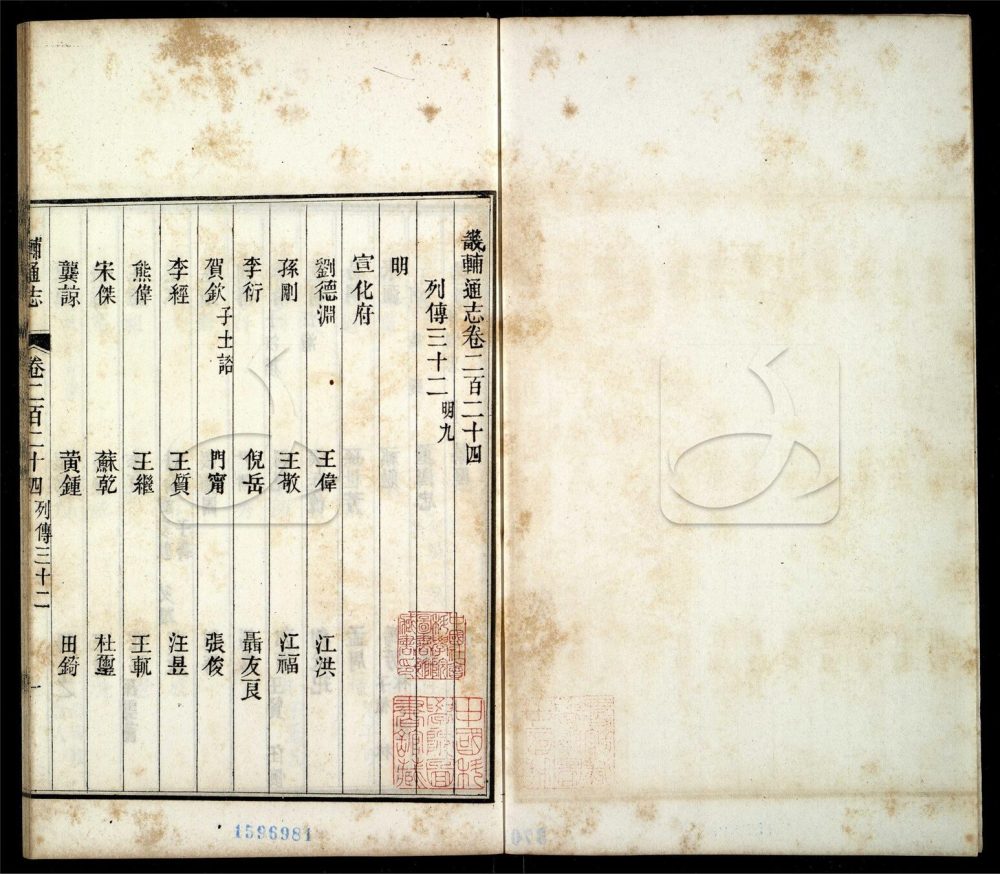 畿輔通志卷二百二十四
列傳三十二 明九
明
宣化府
劉德淵 王偉 江洪
孫剛 王敬 江福
李衍 倪岳 聶友良
賀欽 子士諮 門甯 張俊
李經 王質 汪昱
熊偉 王繼 王軏
宋傑 蘇乾 杜璽
龔諒 黃鍾 田錡
輔通志 卷二百二十四 列傳三十二 一
1596981